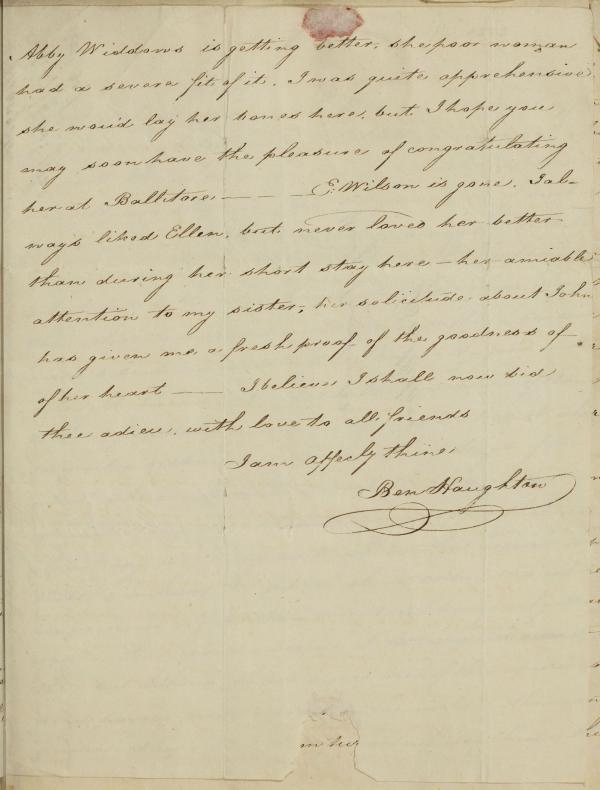 Abby Widdows is getting better, she poor woman
had a severe fit of it. I was quite apprehensive
she would lay her bones here, but I hope you
may soon have the pleasure of congratulating
her at Ballitore — — — E. Wilson is gone. I al-
ways liked Ellen, but never loved her better
than during her short stay here – her amiable
attention to my sister, her solicitude about John
has given me a fresh proof of the goodness of
of her heart —— I believe I shall now bid
thee adieu, with love to all friends
I am affecly thine
Ben Haughton